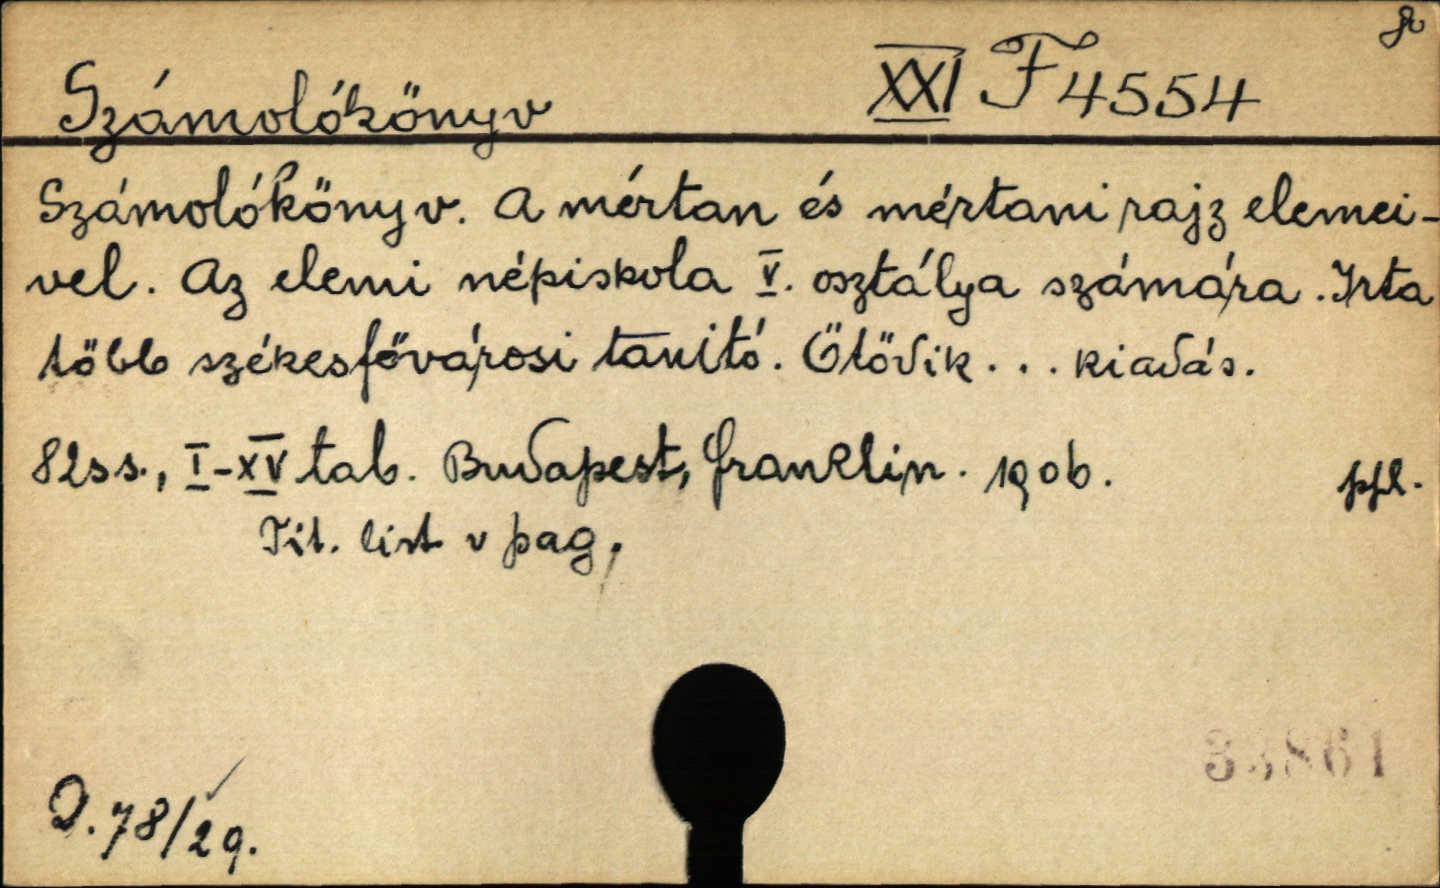 Számolókönyv XXI F 4554
Számolókönyv. A mértan és mértani rajz elemei-
vel. Az elemi népiskola V. osztálya számára. Irta
több székesfővárosi tanító. Ötödik... kiadás.
82 s s., I-XV tab. Budapest, Franklin. 1906. ppl.
Tit. list v pag.
33861
D. 78/29.